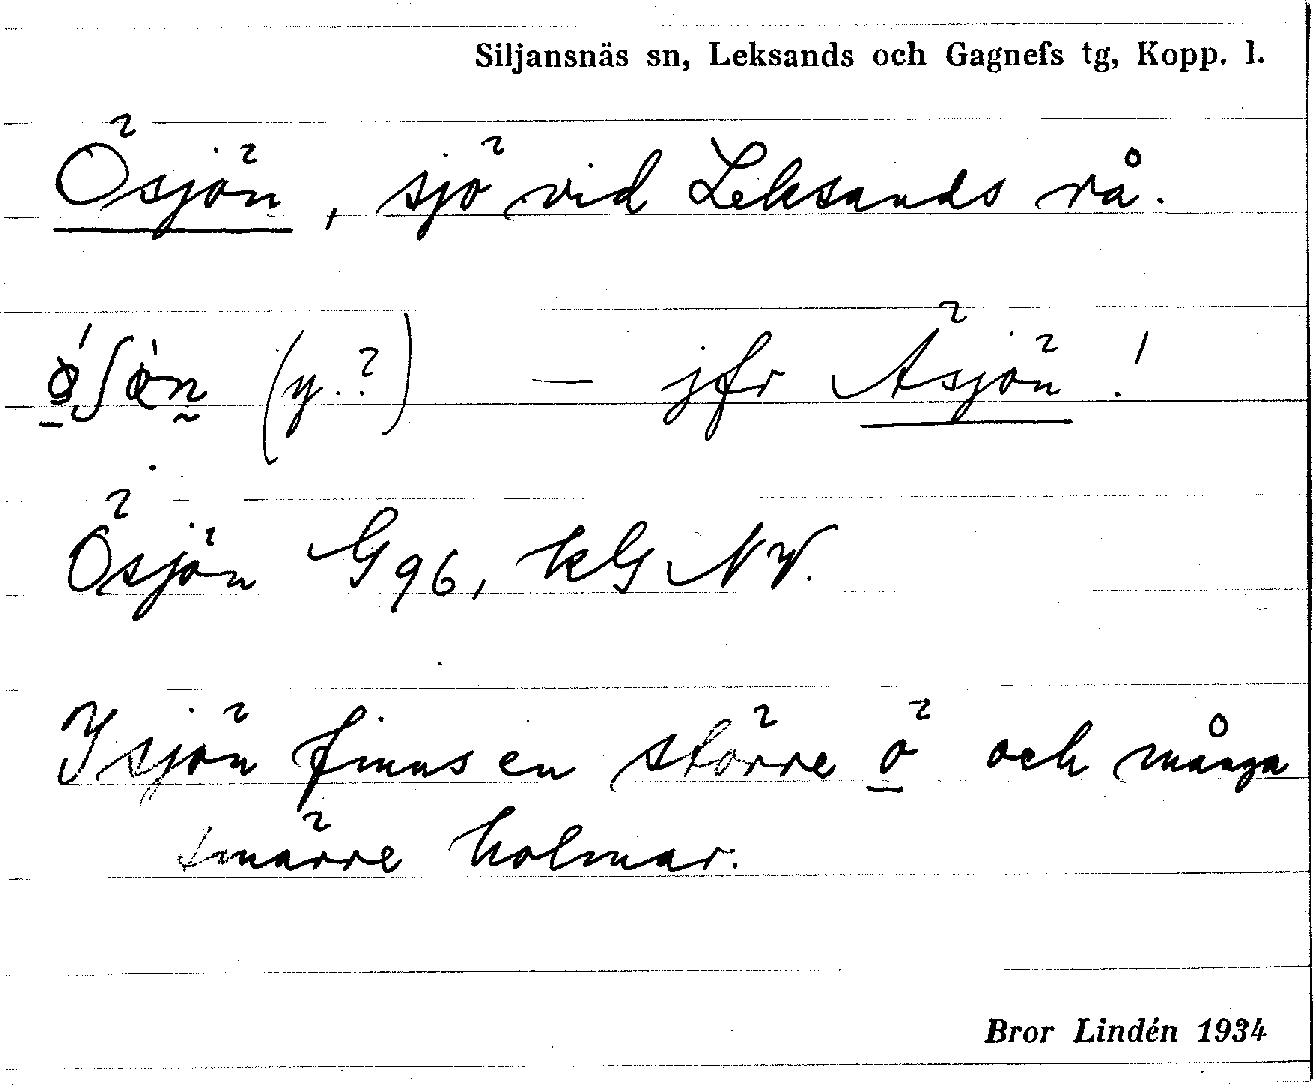 Siljansnäs sn, Leksands och Gagnefs tg, Kopp. l.
Ösjön, sjö vid Leksands rå.
(y.?) — jfr Äsjön!
Ösjön G96, kG NV.
I sjön finns en större ö och många
smärre holmar.
Bror Lindén 1934